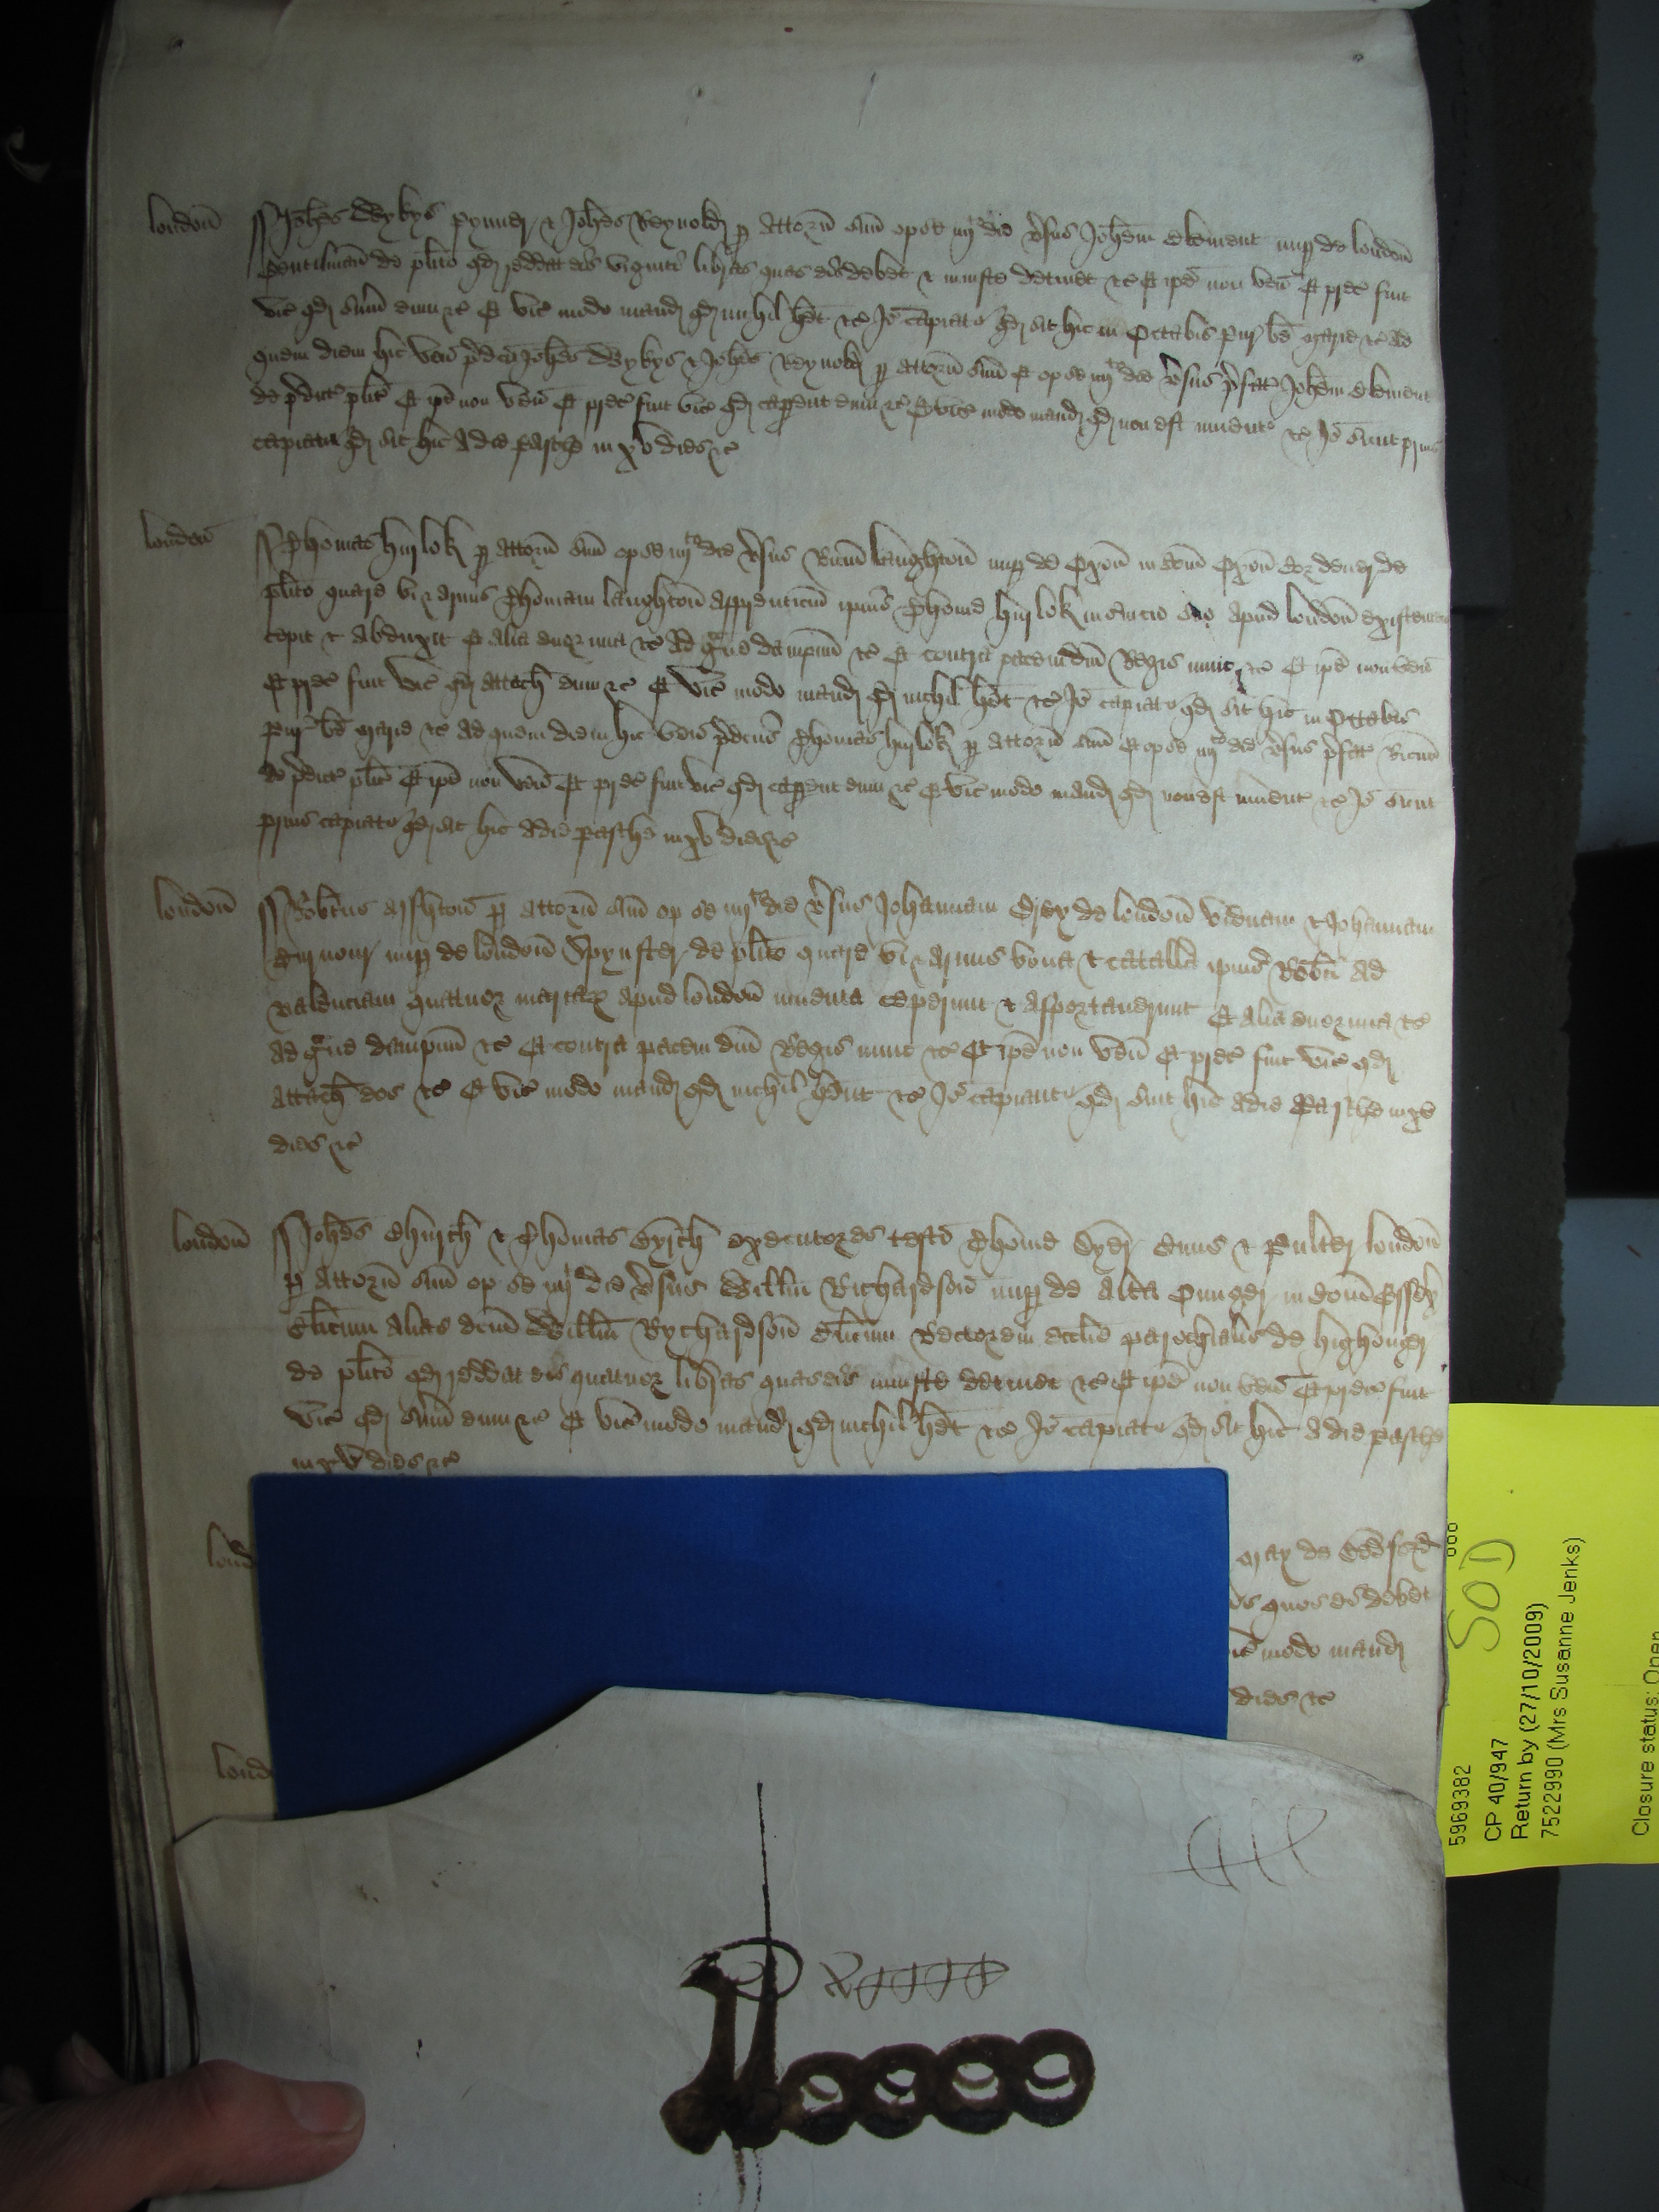 londoñ
Joħes Wykys Pynner & Joħes Reynold p attorñ suũ op se iiijto die vsus Joħem Clement nup de londoñ
Gentilman de plito qd reddat eis viginti libras quas eis debet & iniuste detinet &c Et ipe non veñ Et prec fuit
vic qd sum eum &c Et vic modo mand qd nichil het &c Jo capiat qd sit hic in Octabis Pur be Marie &c Ad
quem diem hic veñ pdcti Joħes Wykys & Joħes Reynold p attorñ suũ Et op se iiijto die vsus pfat Joħem Clement
de pdict plito Et ipe non veñ Et prec fuit vic qd caperent eum &c Et vic modo mand qd non est inuent &c Jo sicut prius
capiatr qd sit hic A die Pasche in xv dies &c
londoñ
Thomas hurlok p attorñ suũ op se iiijto die vsus Ricũ laughtoñ nup de Oxoñ in Com Oxoñ Cordener de
plito quare vi & armis Thomam laughtoñ apprenticium ipius Thome hurlok in seruicio suo apud londoñ existentem
cepit & abduxit Et alia enormia &c Ad graue dampnũ &c Et contra pacem dni Regis nunc &c Et ipe non veñ
Et prec fuit vic qd attach eum &c Et vic modo mand qd nichil het &c Jo capiat qd sit hic in Octabis
Pur be Marie &c Ad quem diem hic veñ pdcus Thomas hurlok p attorñ suũ Et op se iiijto die vsus pfat Ricũ
de pdict plito Et ipe non veñ Et prec fuit vic qd caperent eum &c Et vic modo mand qd non est inuent &c Jo sicut
prius capiat qd sit hic A die Pasche in xv dies &c
londoñ
Robtus Assħtoñ p attorñ suũ op se iiijto die vsus Johannam Grey de londoñ viduam & Johannam
nup de londoñ Spynster de plito quare vi & armis bona & catalla ipius Robti ad
valenciam quatuor marcarz apud londoñ inuenta ceperunt & asportauerunt Et alia enormia &c
Ad graue dampnũ &c Et contra pacem dni Regis nunc &c Et ipe non veñ Et prec fuit vic qd
attach eos &c Et vic modo mand qd nichil hent &c Jo capiantr qd sint hic A die Pasche in xv
dies &c
londoñ
Joħes Chirch & Thomas executores testi Thome Ciuis & Pulter londoñ
p attorñ suũ op se iiijto die vsus Willm Richardson nup de Alta Ongar in Com Essex
Clicum Alias dcum Willm Rychardson Clicum Rectorem ecclie parochialis de highonger
de plito qd reddat eis quatuor libras quas eis iniuste detinet &c Et ipe non veñ Et prec fuit
vic qd sum eum &c Et vic modo mand qd nichil het &c Jo capiat qd sit hic A die Pasche
in xv dies &c
lond
May de Bedford
quos ei debet
vic modo mand
dies &c
lond
5969382
CP 40/947
Return by (27/10/2009)
7522990 (Mrs Susanne Jenks)
Closure status: Open
SOD